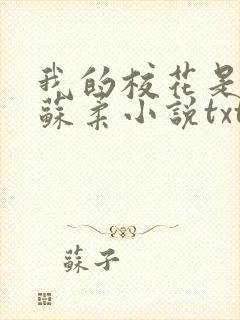 我的校花是
蘇柔小說txt
蘇子